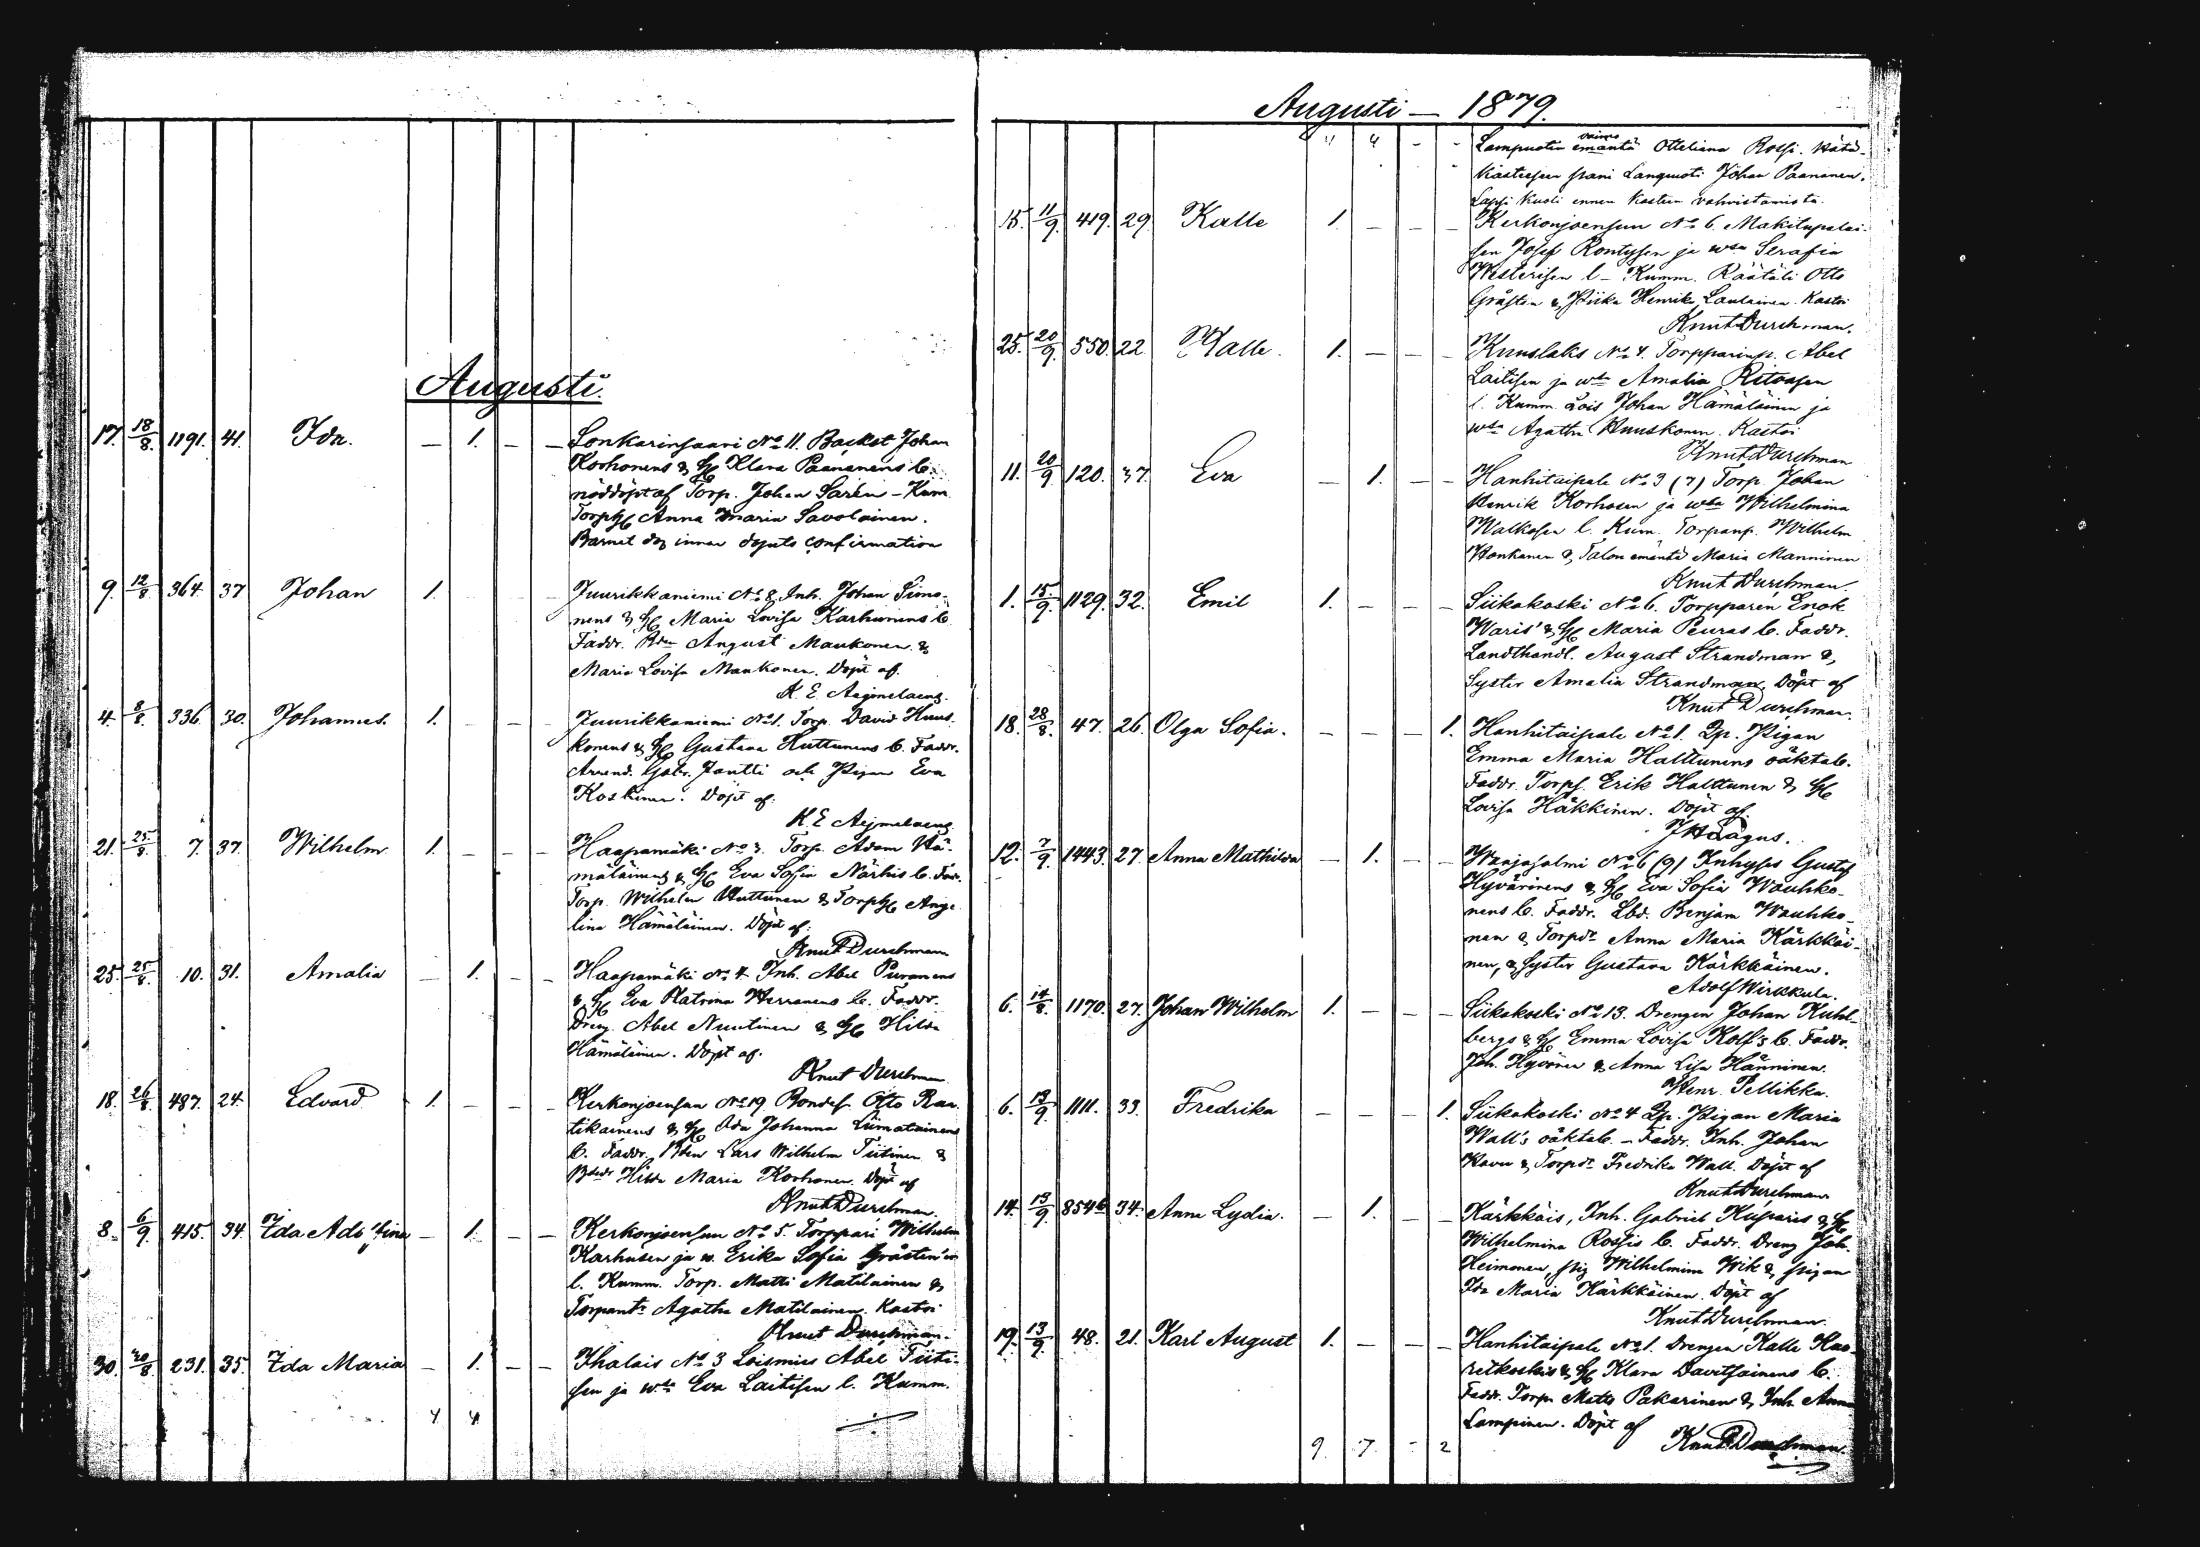 Augusti.
17. 18/8. 1191. 41. Ida. — 1. — — Lonkarinsaari No 11. Backst Johan
Korhonens & H Klara Paananens b.
nöddöpt af Torp. Johan Sarén — Kum.
Torph Anna Maria Savolainen.
Barnet dog innan dopets confirmation
9. 12/8. 364. 37 Johan 1. Juurikkaniemi No 8 Inh. Johan Simo-
nens & H Maria Lovisa Karhunens b.
Faddr. August Maukonen &
Maria Lovisa Maukonen. Döpt af
K. E. Aejmelaeus.
4. 8/8. 336. 30. Johannes. 1. — — Juurikkaniemi No 1. Torp. David Huus-
konens & H Gustava Huttunens b. Faddr.
Arrend. Gabr. Jantti och Pigan Eva
Koskinen. Döpt af.
K. E. Aejmelaeus
21. 25/8. 7. 37. Wilhelm 1. — — — Haapamäki No 3. Torp. Adam Hä-
mäläinens & H Eva Sofia Närhis b. Fadr.
Torp. Wilhelm Huttunen & Torph Ange-
lina Hämäläinen. Döpt af.
Knut Durchman
25. 25/8. 10. 31. Amalia — 1. — — Haapamäki No 4 Inh. Abel Puranens
& H Eva Katrina Herranens b. Faddr.
Dreng. Abel Nuutinen & H Hilda
Hämäläinen. Döpt af.
Knut Durchman
18. 26/8. 487. 24. Edvard 1. — — — Kerkonjoensuu No 19. Bondes. Otto Rau-
tikainens & H Ida Johanna Liimatainens
b. Faddr. Bden Lars Wilhelm Tiitinen &
Bdedr Hilda Maria Korhonen. Döpt af
Knut Durchman.
8. 6/9. 415. 34. Ida Adolfina — 1. — — Kerkonjoensuu No 5. Torppari Wilhelm
Karhusen ja w. Erika Sofia Gråsten'in
l. Kumm. Torp. Matti Matilainen &
Agatha Matilainen. Kastoi
Knut Durchman.
30. 30/8. 231. 35. Ida Maria — 1. — — Ihalais No 3 Loismies Abel Tiiti-
sen ja wsa Eva Laitisen l. Kumm.
4 4
Augusti — 1879.
4 4 - - Lampuotin vaimo emäntä Otteliana Rossi. Hätä-
kasteesen pani Lampuoti Johan Paananen.
Lapsi kuoli ennen kasteen vahvistamista.
15. 11/9. 419. 29. Kalle 1. — — — Kerkonjoensuu No 6. Mäkitupalai-
sen Josef Rontysen ja wsn Serafia
Westerisen l — Kumm. Räätäli Otto
Gråsten & Piika Henrika Laulainen. Kastoi
Knut Durchman.
25. 20/9. 550. 22. Kalle. 1. — — — Kuuslaks No 4. Torpparinp. Abel
Laitisen ja wsn Amalia Ritvasen
l. Kumm. Lois Johan Hämäläinen ja
wsa Agatha Huuskonen. Kastoi
Knut Durchman
11. 20/9 120. 37. Eva — 1. — — Hanhitaipale No 3 (7) Torp. Johan
Henrik Korhosen ja wsa Wilhelmina
Malkosen l. Kum. Torpanp. Wilhelm
Honkanen & Talon emäntä Maria Manninen
Knut Durchman.
1. 15/9. 1129. 32. Emil 1. — — — Siikakoski No 6. Torpparen Enok
Waris' & H Maria Peuras b. Faddr.
Landthandl. August Strandman &
Syster Amalia Strandman. Döpt af
Knut Durchman.
18. 28/8. 47. 26. Olga Sofia. — — — 1. Hanhitaipale No 1. Qp. Pigan
Emma Maria Halttunens oäkta b.
Faddr. Torps. Erik Halttunen & H
Lovisa Häkkinen. Döpt af.
J Haagus.
12. 7/9. 1443. 27. Anna Mathilda — 1. — — No 6 (9) Inhyses Gustaf
Hyvärinens & H Eva Sofia Wauhko-
nens b. Faddr. Lbd. Benjam Wauhko-
nen & Torpdr Anna Maria Kärkkäi-
nen, & Syster Gustava Kärkkäinen.
Adolf Wirkkula.
6. 14/8. 1170. 27. Johan Wilhelm 1. — — — Siikakoski No 13. Drengen Johan Kuhl-
bergs & H Emma Lovisa Kolf's b. Faddr.
Joh. Hyvöne & Anna Lisa Hänninen.
Henr. Pellikka.
6. 13/9. 1111. 33. Fredrika — — — 1. Siikakoski No 4 Qp. Pigan Maria
Wall's oäkta b. — Faddr. Inh. Johan
Kavu & Torpdr Fredrika Wall. Döpt af
Knut Durchman
14. 13/9. 854b 34. Anna Lydia. — 1. — — Kärkkäis, Inh. Gabriel Kuparis & H
Wilhelmina Rossis b. Faddr. Dreng Joh.
Heimonen, pig Wilhelmina Wik & pigan
Ida Maria Kärkkäinen. Döpt af
Knut Durchman.
19. 13/9. 48. 21. Karl August 1. — — Hanhitaipale No 1. Drengen Kalle Hau-
retkoskis & H Klara Davitsainens b.
Faddr. Torpn Matts Pakarinen & Inh. Anna
Lampinen. Döpt af
9. 7. - 2 Knut Durchman.